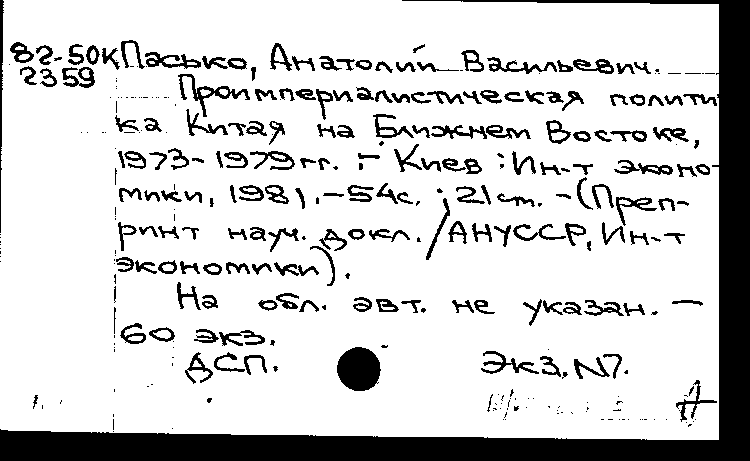 82-50К Пасько, Анатолий Васильевич.
2359
Проимпериалистическая полити
ка Китая на Ближнем Востоке,
1973-1979 гг. - Киев : Ин-т эконо-
мики, 1981. - 54с. ; 21 cm. - (Преп-
ринт науч. докл. / АН УССР, Ин-т
экономики).
На обл. авт. не указан. -
60 экз.
ДСП. Экз. N7.
А